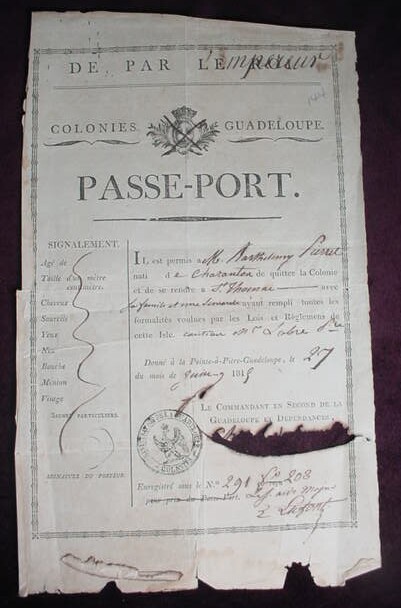 DE PAR LE ROI l'Empereur
COLONIES. GUADELOUPE.
PASSE-PORT.
SIGNALEMENT.
Agé de
Taille d'un mètre
centimètre.
Cheveux
Sourcils
Yeux
Nez
Bouche
Menton
Visage
SIGNES PARTICULIERS.
SIGNATURE DU PORTEUR.
IL est permis à M. Barthelemy
nati de Charanton de quitter la Colonie
et de se rendre à St Thomas avec
sa famille et une servante ayant rempli toutes les
formalités voulues par les Lois et Règlemens de
cette Isle. caution Mr
Donné à la Pointe-à-Pitre-Guadeloupe, le 27
du mois de Juin 1815
LE COMMANDANT EN SECOND DE LA
GUADELOUPE ET DÉPENDANCES,
Enregistré sous le N.° 291 fo 208